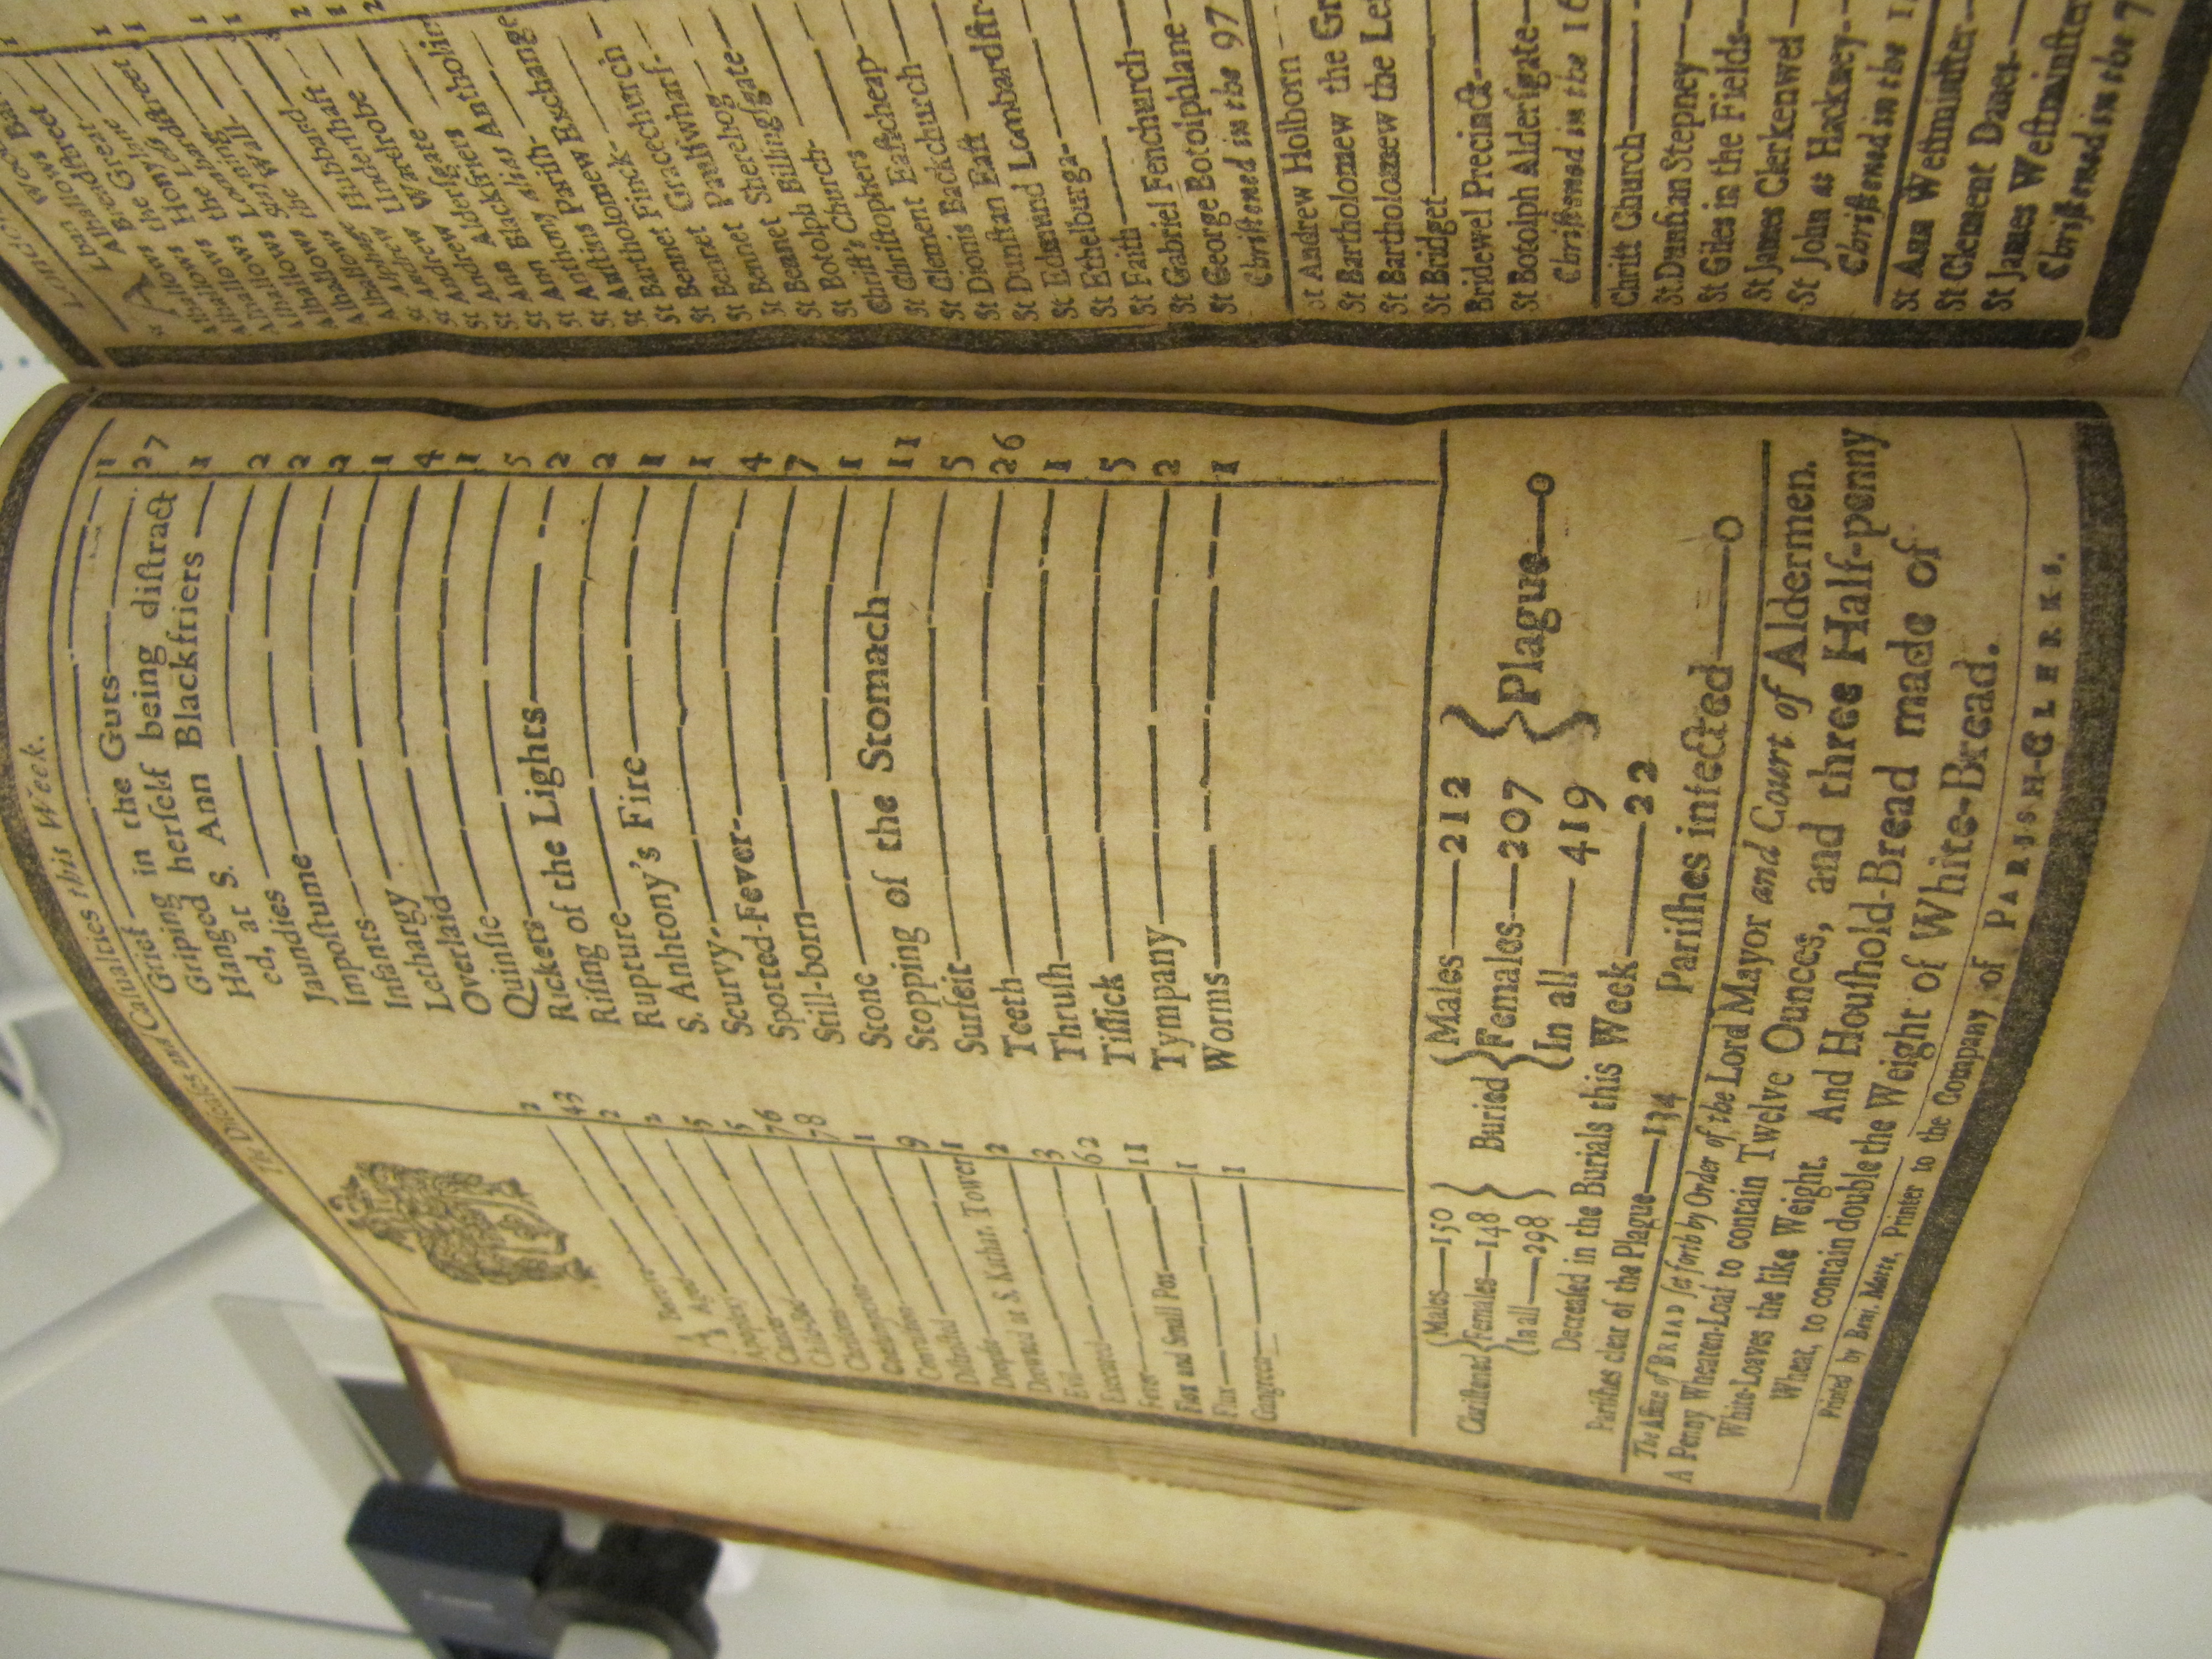 The Diseases and Casualties this Week.
Abortive 2
Aged 43
Apoplexy 2
Cancer 2
Childbed 5
Chrisoms 5
Consumption 76
Convulsion 78
Distracted 1
Dropsie 9
Drowned at S. Kathar. Tower 1
Evil 2
Executed 3
Fever 62
Flox and Small Pox— 11
Flux— 1
Gangreen 1
Grief 1
Griping in the Guts— 27
Hanged herſelf being diſtract
ed, at S. Ann Blackfriers — 1
Jaundies 2
Impoſtume 2
Infants 2
Lethargy 1
Overlaid 4
Quinſie 1
Rickets 5
Riſing of the Lights— 2
Rupture 2
S. Anhtony's Fire— 1
Scurvy 1
Spotted-Fever 4
Still-born 7
Stone 1
Stopping of the Stomach— 11
Surfeit 5
Teeth 26
Thruſh 1
Tiſſick 5
Tympany 2
Worms 1
Chriſtened { Males—150 Females—148 In all—298 }
Buried { Males—212 Females—207 In all—419 } Plague—0
Decreaſed in the Burials this Week—22
Pariſhes clear of the Plague—134 Pariſhes infected—0
The Aſſize of BREAD ſet forth by Order of the Lord Mayor and Court of Aldermen.
A Penny Wheaten-Loaf to contain Twelve Ounces, and three Half-penny
White-Loaves the like Weight. And Houſhold-Bread made of
Wheat, to contain double the Weight of White-Bread.
Printed by Benj. Motte, Printer to the Company of PARISH-CLERKS.
St Andrew Wardrobe
St Ann Alderſgate
St Ann Blackfriers
St Anthony alias Antholin
St Auſtins Parish
St Bartholomew Exchange
St Bennet Finck
St Bennet Gracechurch
St Bennet Paulſwharf
St Bennet Sherehog
St Botolph Billingſgate
Chriſt's Church
St Chriſtophers
St Clement Eaſtcheap
St Dionis Backchurch
St Dunſtan Eaſt
St Edmund Lombardſtr
St Ethelburga
St Faith
St Gabriel Fenchurch
St George Botolphlane
Chriſtened in the 97
St Andrew Holborn
St Bartholomew the Gr
St Bartholomew the Le
St Bridget
Bridewel Precinct
St Botolph Alderſgate
Chriſtened in the 16
Chriſt Church
St Dunſtan Stepney
St Giles in the Fields
St James Clerkenwel
St John at Hackney
Chriſtened in the 1
St Ann Weſtminſter
St Clement Danes
St James Weſtminſter
Chriſtened in the 7